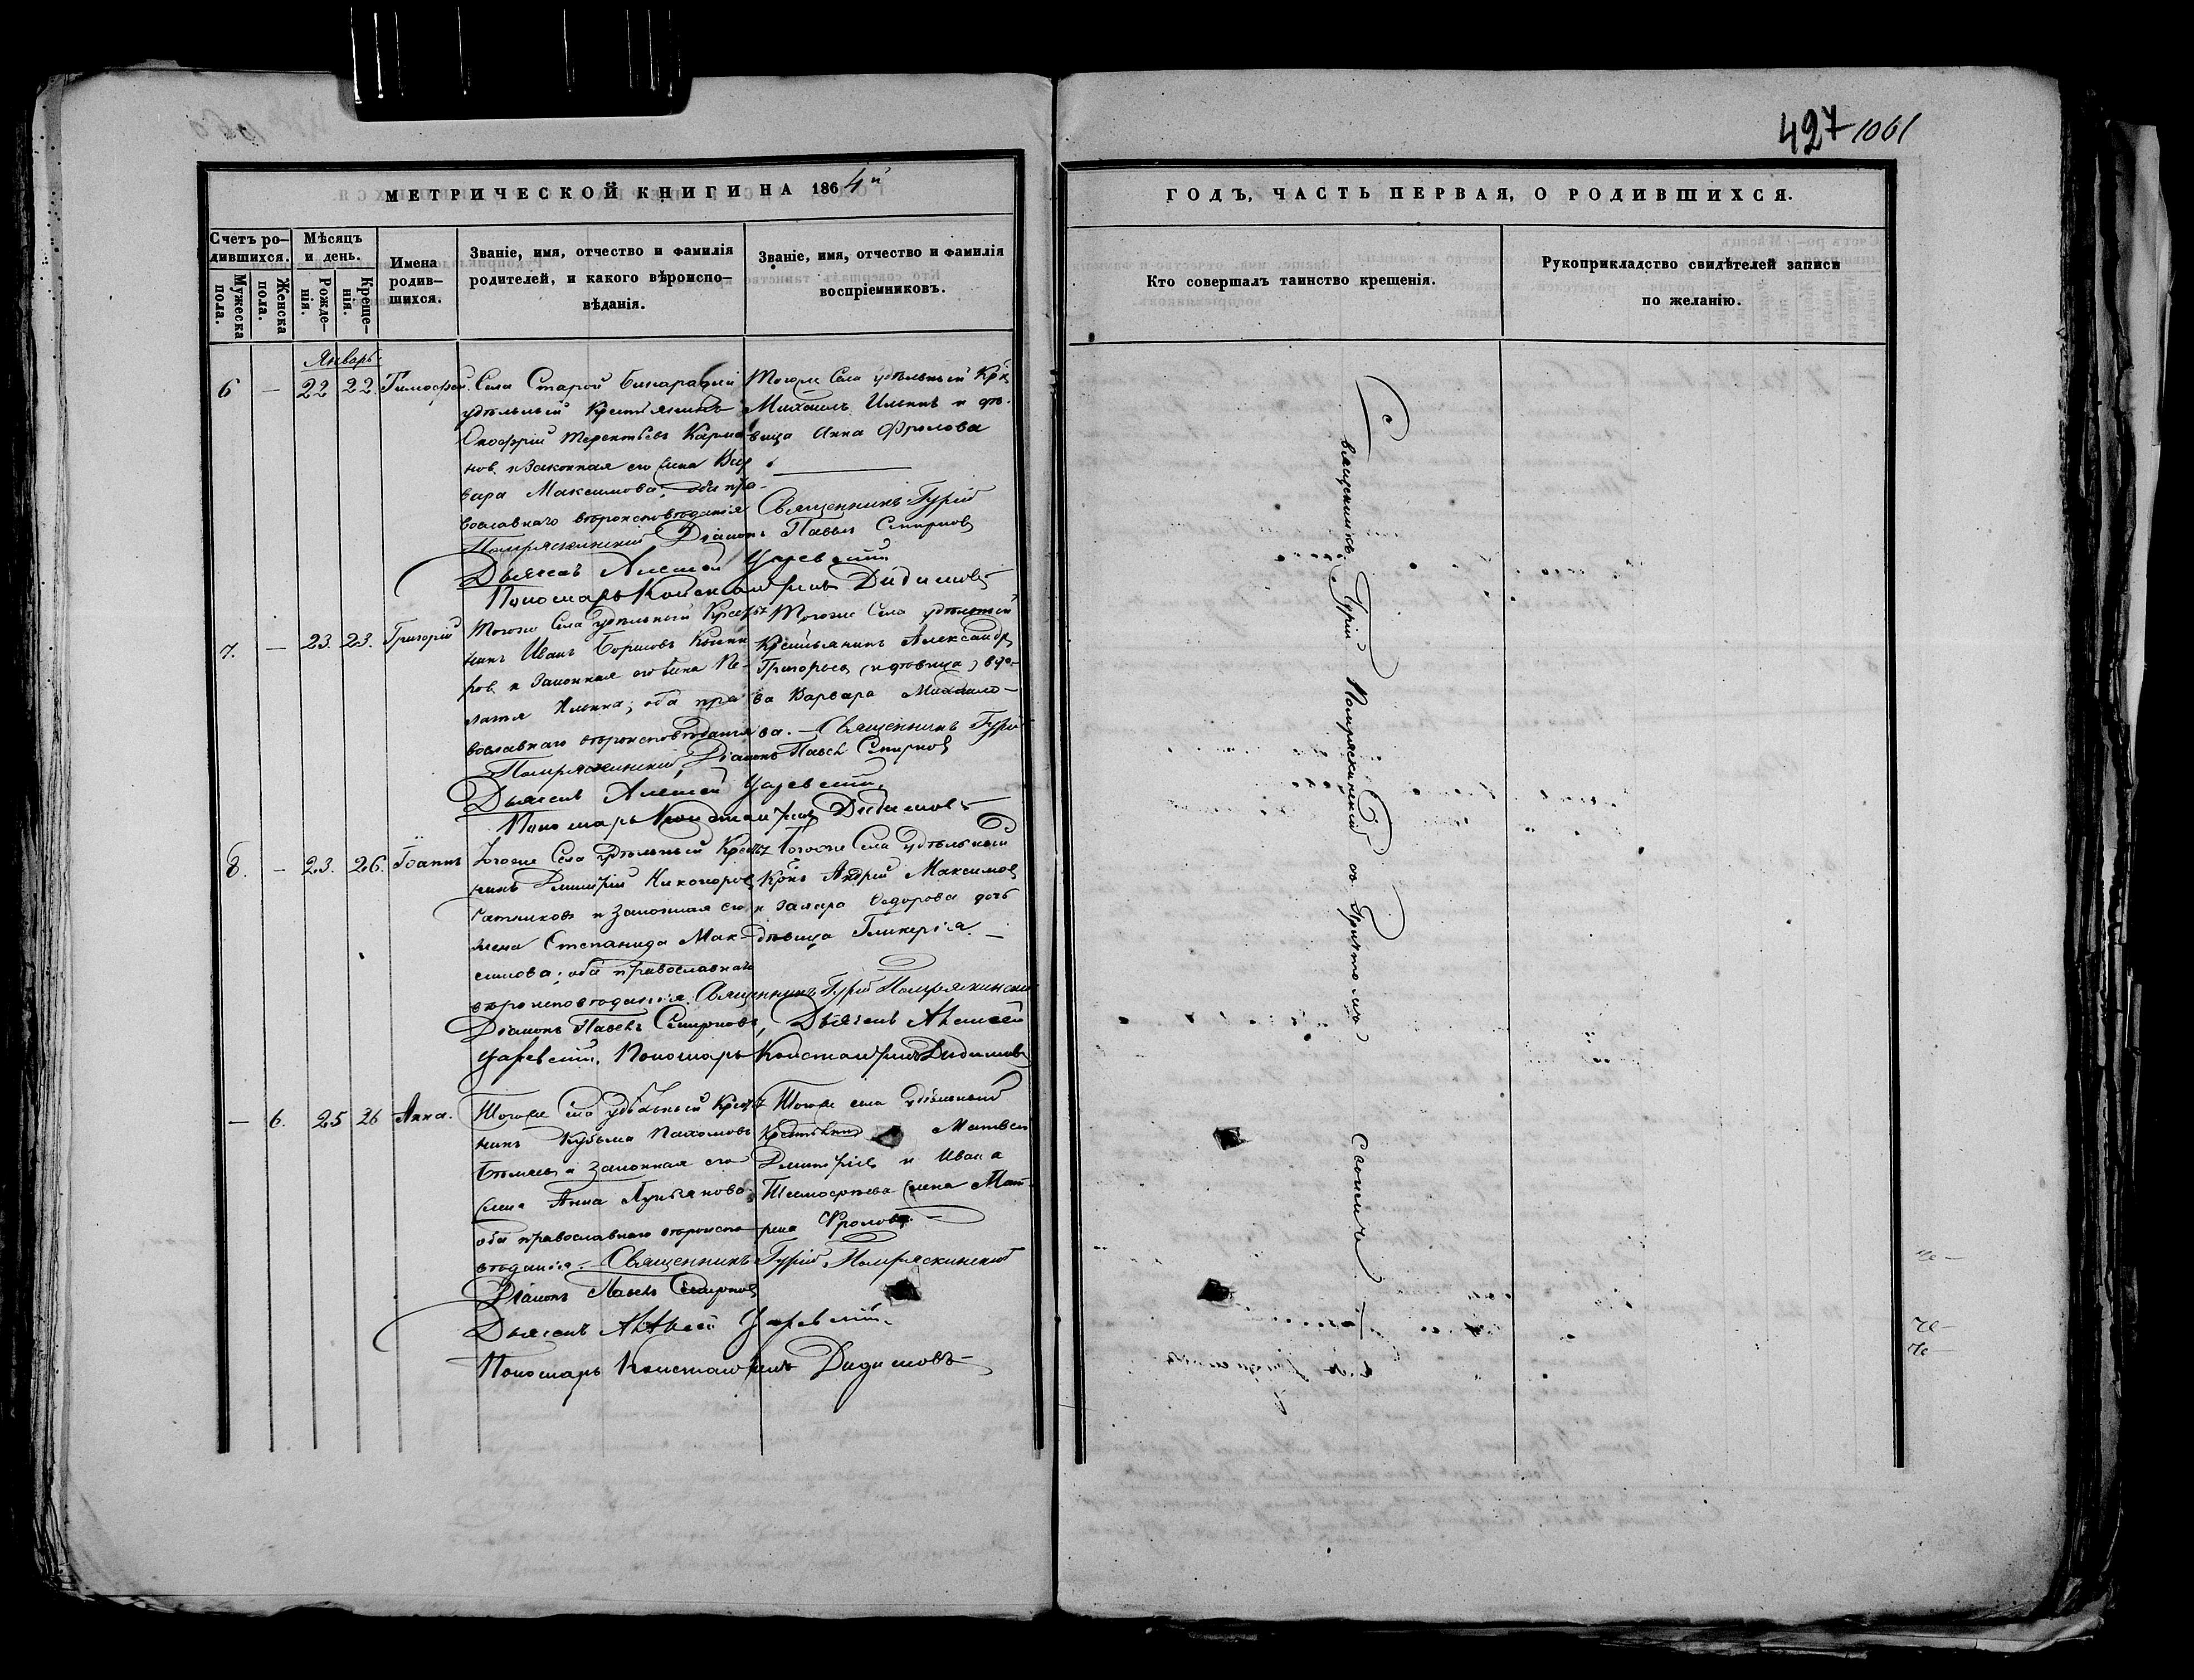 427 1061
МЕТРИЧЕСКОЙ КНИГИ НА 1864й
ГОДЪ, ЧАСТЬ ПЕРВАЯ, О РОДИВШИХСЯ.
Счетъ ро-
дившихся.
Мужеска
пола.
Женска
пола.
Мѣсяцъ
и день.
Рожде-
нія.
Креще-
нія.
Имена
родив-
шихся.
Званіе, имя, отчество и фамилія
родителей, и какого вѣроиспо-
вѣданія.
Званіе, имя, отчество и фамилія
воспріемниковъ.
Кто совершалъ таинство крещенія.
Рукоприкладство свидѣтелей записи
по желанію.
Январь
6 — 22 22 Тимофей.
Села Старой
удѣльный Крестьянинъ
Онофрій Терентьевъ
новъ и законная его жена Вар
вара Максимова; оба пра-
вославнаго вѣроисповѣданія
Тогоже Села удѣльный Кр
Михаилъ Ильинъ и дѣ-
вица Анна Фролова
Священникъ Гурій
Помряскинскій Діаконъ Павелъ Смирновъ
Дьячекъ Алексей Царевскій
Пономарь Константинъ Дидимовъ
7. — 23. 23. Григорій
Тогоже Села удѣльный Кресть
нинъ Иванъ Борисовъ
ровъ и законная его жена Пе-
лагія Ильина; оба пра
вославнаго вѣроисповѣданія
Тогоже Села удѣльный
Крестьянинъ Александръ
Григорьевъ (и дѣвица) вдо-
ва Варвара Михайло-
ва. — Священникъ Гурій
Помряскинскій, Діаконъ Павелъ Смирновъ
Дьячекъ Алексей Царевскій
Пономарь Константинъ Дидимовъ
8. — 23. 26. Іоаннъ
Тогоже Села удѣльный Кресть
нинъ Димитрій Никоноровъ
и законная его
жена Степанида Мак-
симова; оба православнаго
вѣроисповѣданія.
Тогоже Села удѣльный
Крнъ Андрей Максимовъ
и Федорова дочь
дѣвица Гликерія. —
Священникъ Гурій Помряскинскій
Діаконъ Павелъ Смирновъ, Дьячекъ Алексей
Царевскій. Пономарь Константинъ Дидимовъ
— 6. 25 26 Анна.
Тогоже Села удѣльный Кресть
нинъ Кузьма Пахомовъ
и законная его
жена Анна Лукьянова
оба православнаго вѣроиспо
вѣданія. —
Тогоже села удѣльный
Крестьянинъ Матвей
Димитріевъ и Ивана
Тимофеева жена Мат-
рена Фролова. —
Священникъ Гурій Помряскинскій
Діаконъ Павелъ Смирновъ
Дьячекъ Алексей Царевскій.
Пономарь Константинъ Дидимовъ
Священникъ Гурій Помряскинскій съ Причтомъ